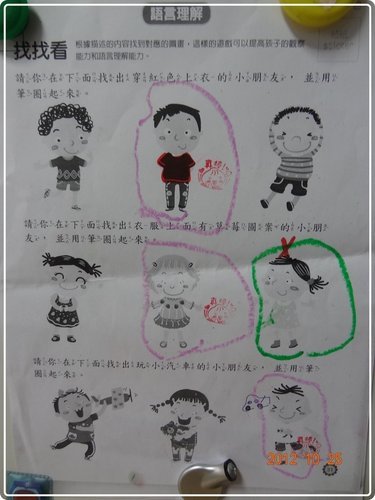 語言理解
找找看
根據描述的內容找到對應的圖畫，這樣的遊戲可以提高孩子的觀察
能力和語言理解能力。
請你在下面找出穿紅色上衣的小朋友，並用
筆圈起來。
請你在下面找出衣服上面有草莓圖案的小朋
友，並用筆圈起來。
請你在下面找出玩小汽車的小朋友，並用筆
圈起來。
2012 10 25